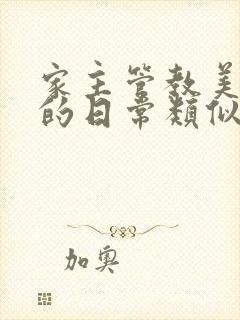 家主管教美
的日常類似
加奧